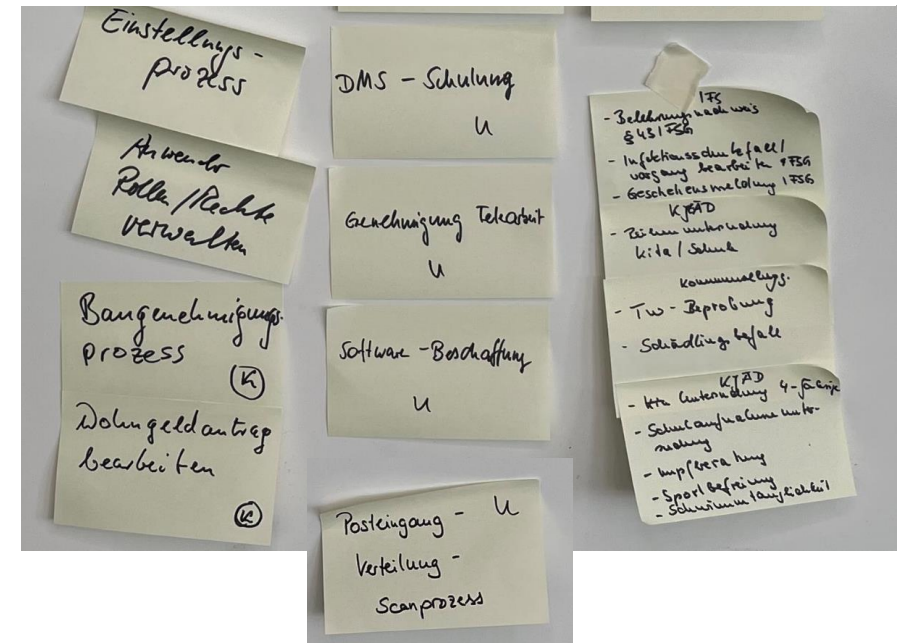 Einstellungs-
prozess
Anwender
Rollen/Rechte
verwalten
Baugenehmigungs-
prozess
K
Wohngeldantrag
bearbeiten
K
DMS - Schulung
U
Genehmigung Telearbeit
U
Software - Beschaffung
U
Posteingang - U
Verteilung -
Scanprozess
IFS
- Belehrungsnachweis
§ 43 IFSG
- Infektionsschutzfall/
vorgang bearbeiten IFSG
- Geschehensmeldung IFSG
KJÄD
- Reihenuntersuchung
Kita/Schule
Kommunalhyg.
- TW - Beprobung
- Schädlingsbefall
KJÄD
- Kita Untersuchung 4-jährige
- Schulaufnahmeunter-
suchung
- Impfberatung
- Sportbefreiung
- Schwimmtauglichkeit